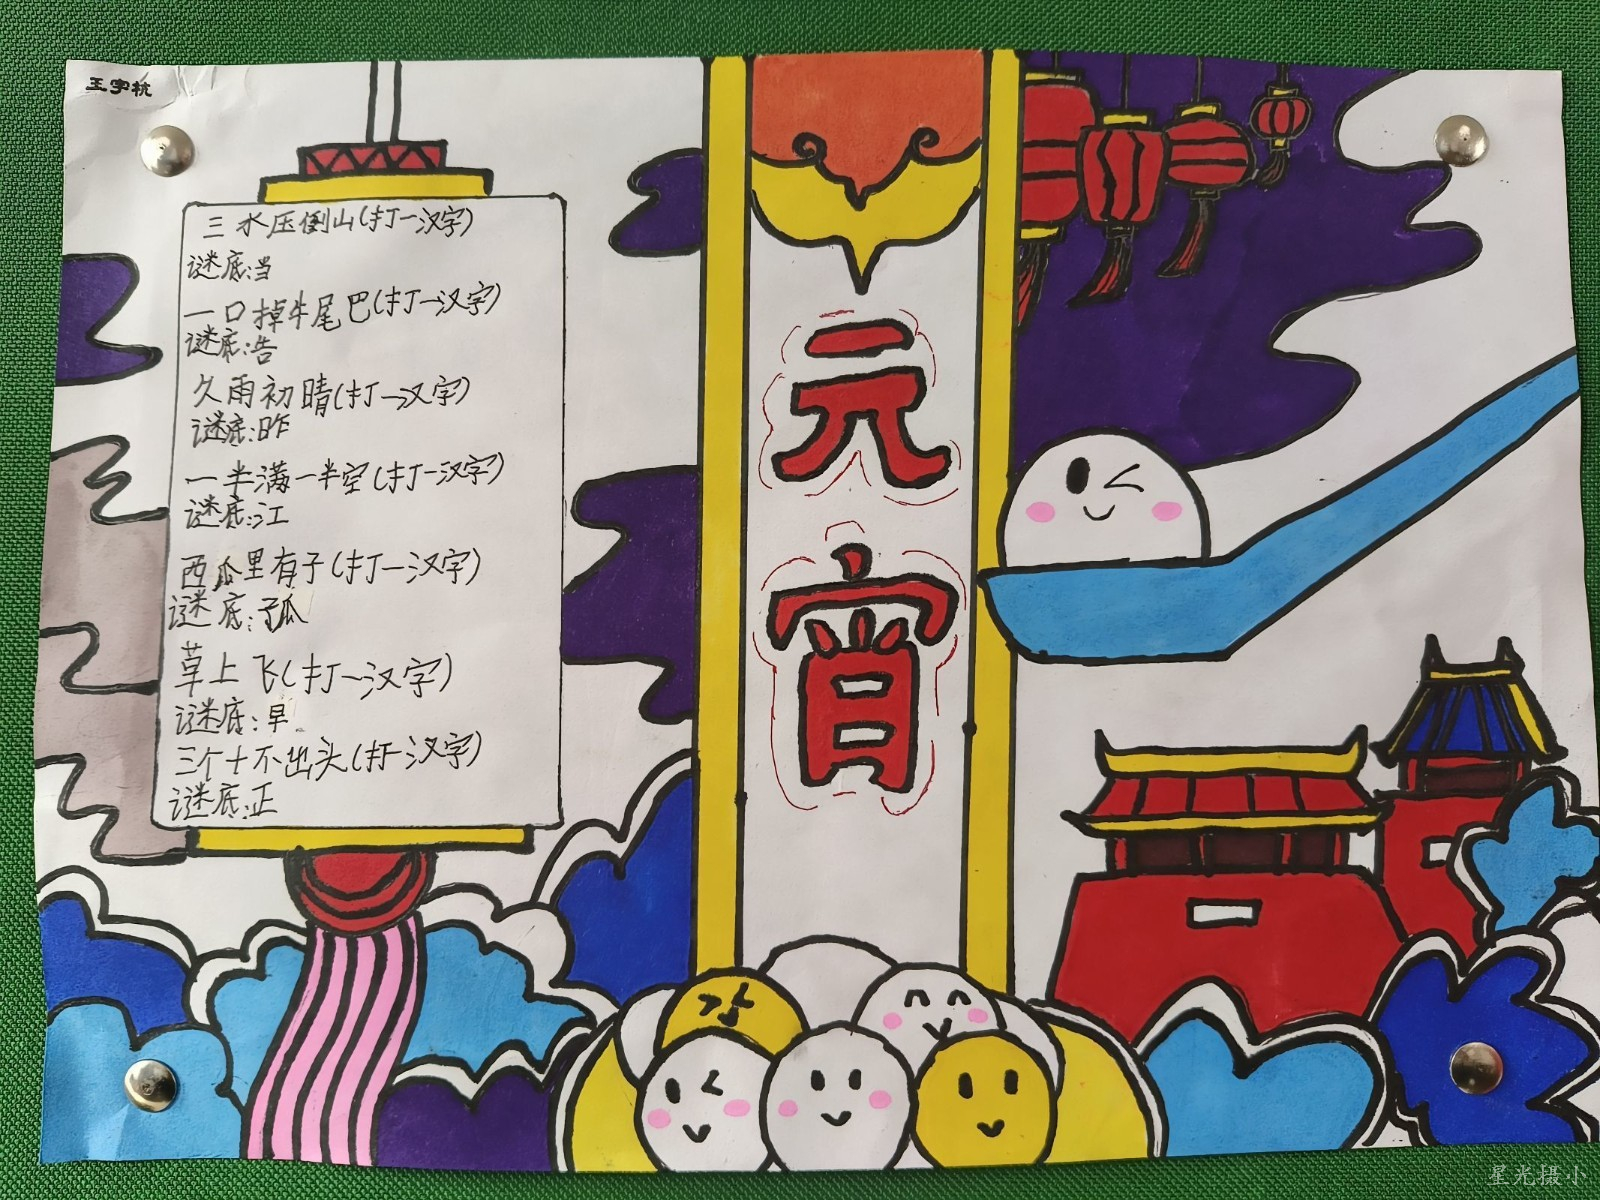 王宇杭
三水压倒山(打一汉字)
谜底:当
一口掉牛尾巴(打一汉字)
谜底:告
久雨初晴(打一汉字)
谜底:昨
一半满一半空(打一汉字)
谜底:江
西瓜里有子(打一汉字)
谜底:孤
草上飞(打一汉字)
谜底:早
三个十不出头(打一汉字)
谜底:正
元
宵
星光摄小